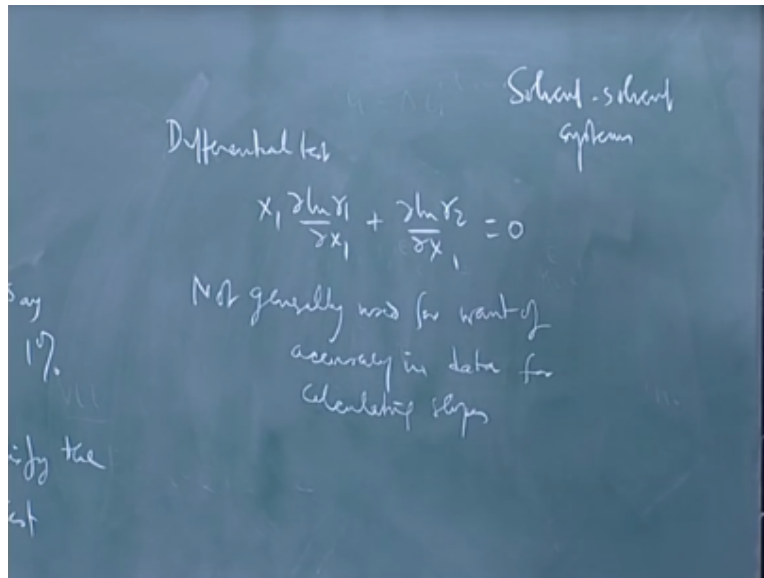 Solvent-solvent
systems
Differential test
x₁ ∂lnγ₁/∂x₁ + ∂lnγ₂/∂x₁ = 0
Say
1%
Not generally used for want of
accuracy in data for
calculating slopes
the